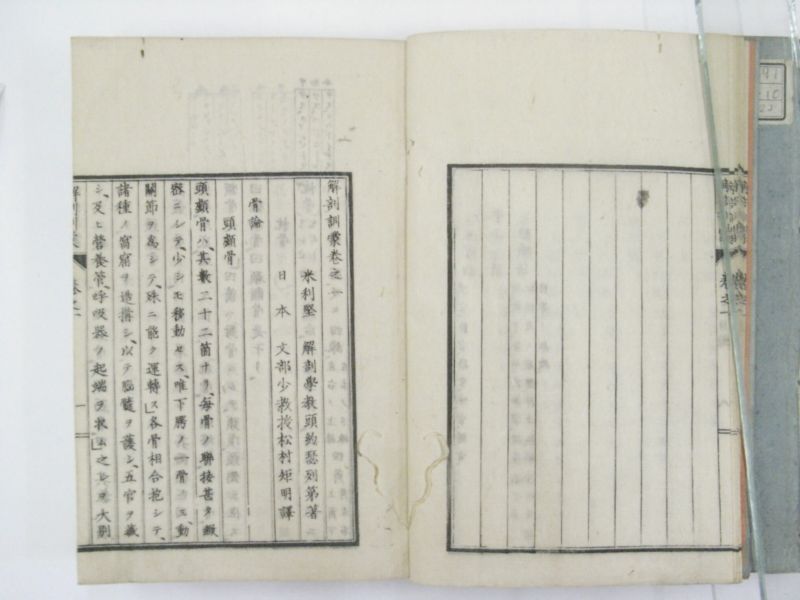 解剖訓蒙卷之一
米利堅 解剖學教頭約瑟列第著
日本 文部少教授松村矩明譯
骨論
頭顱骨
頭顱骨ハ、其數二十二箇ナリ、每骨ノ聯接甚タ緻
密ニシテ、少シモ移動セス、唯下腭ノ一骨ノミ、動
關節ヲ爲シテ、殊ニ能ク運轉ス」各骨相合抱シテ、
諸種ノ窩窟ヲ造搆シ、以テ腦髓ヲ護シ、五官ヲ藏
シ、及ヒ營養管、呼吸器ノ起端ヲ
之ヲ大別
解剖訓蒙 卷之一
卷之一